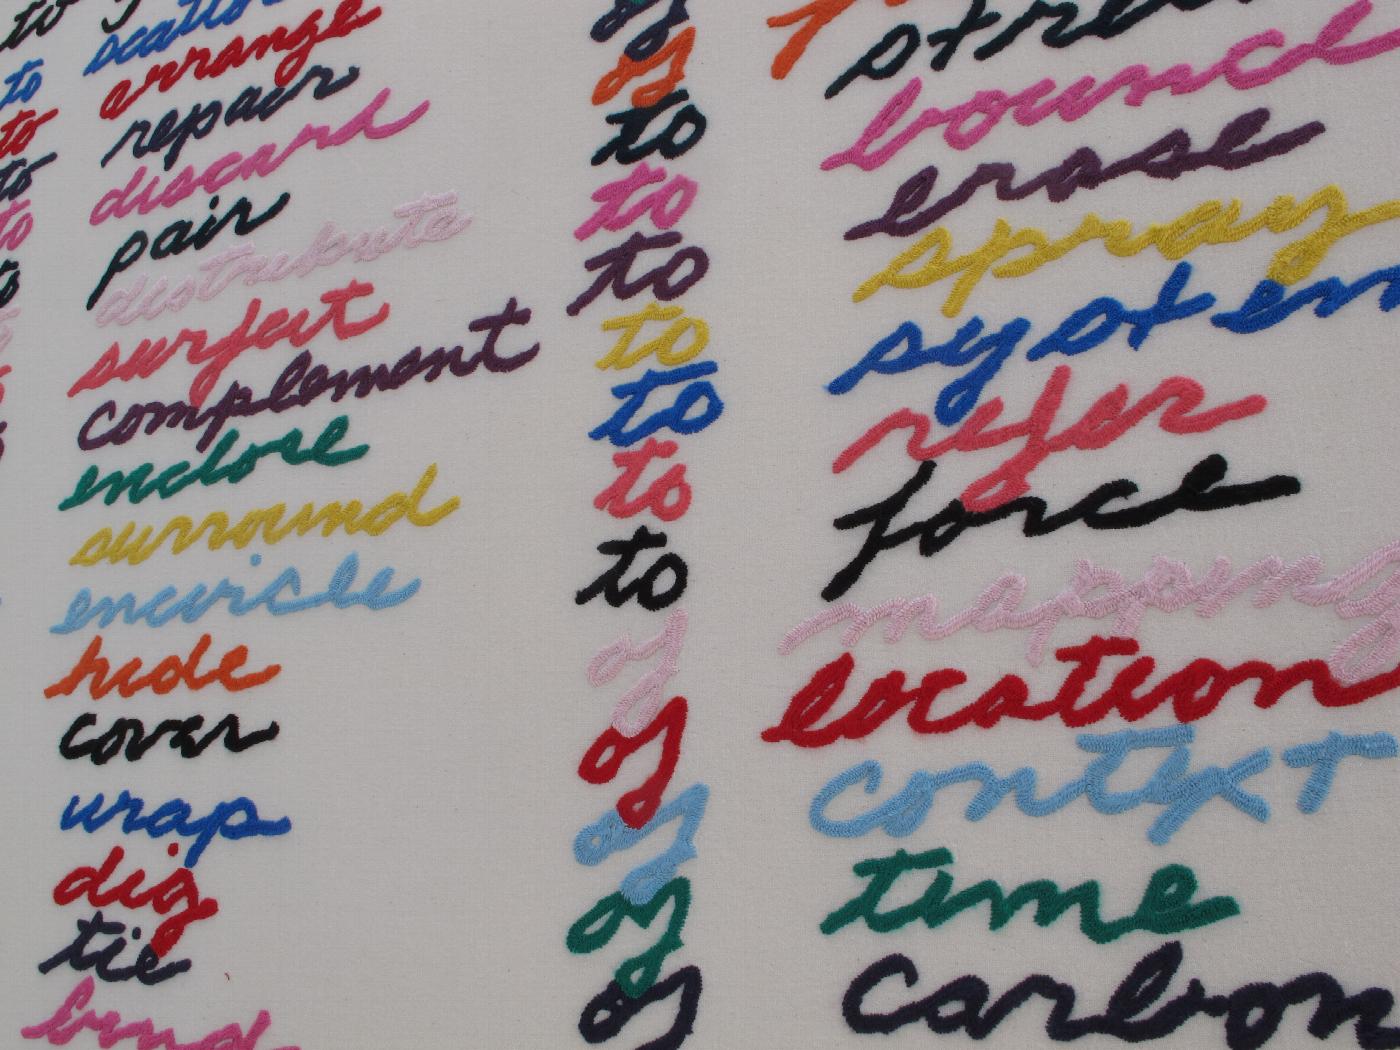 to
to scatter
to arrange
to repair
to discard
to pair
distribute
surfeit
complement
enclose
surround
encircle
hide
cover
wrap
dig
tie
bind
of
of
to
to bounce
to erase
to spray
to system
to refer
to force
of mapping
of location
of context
of time
of carbon